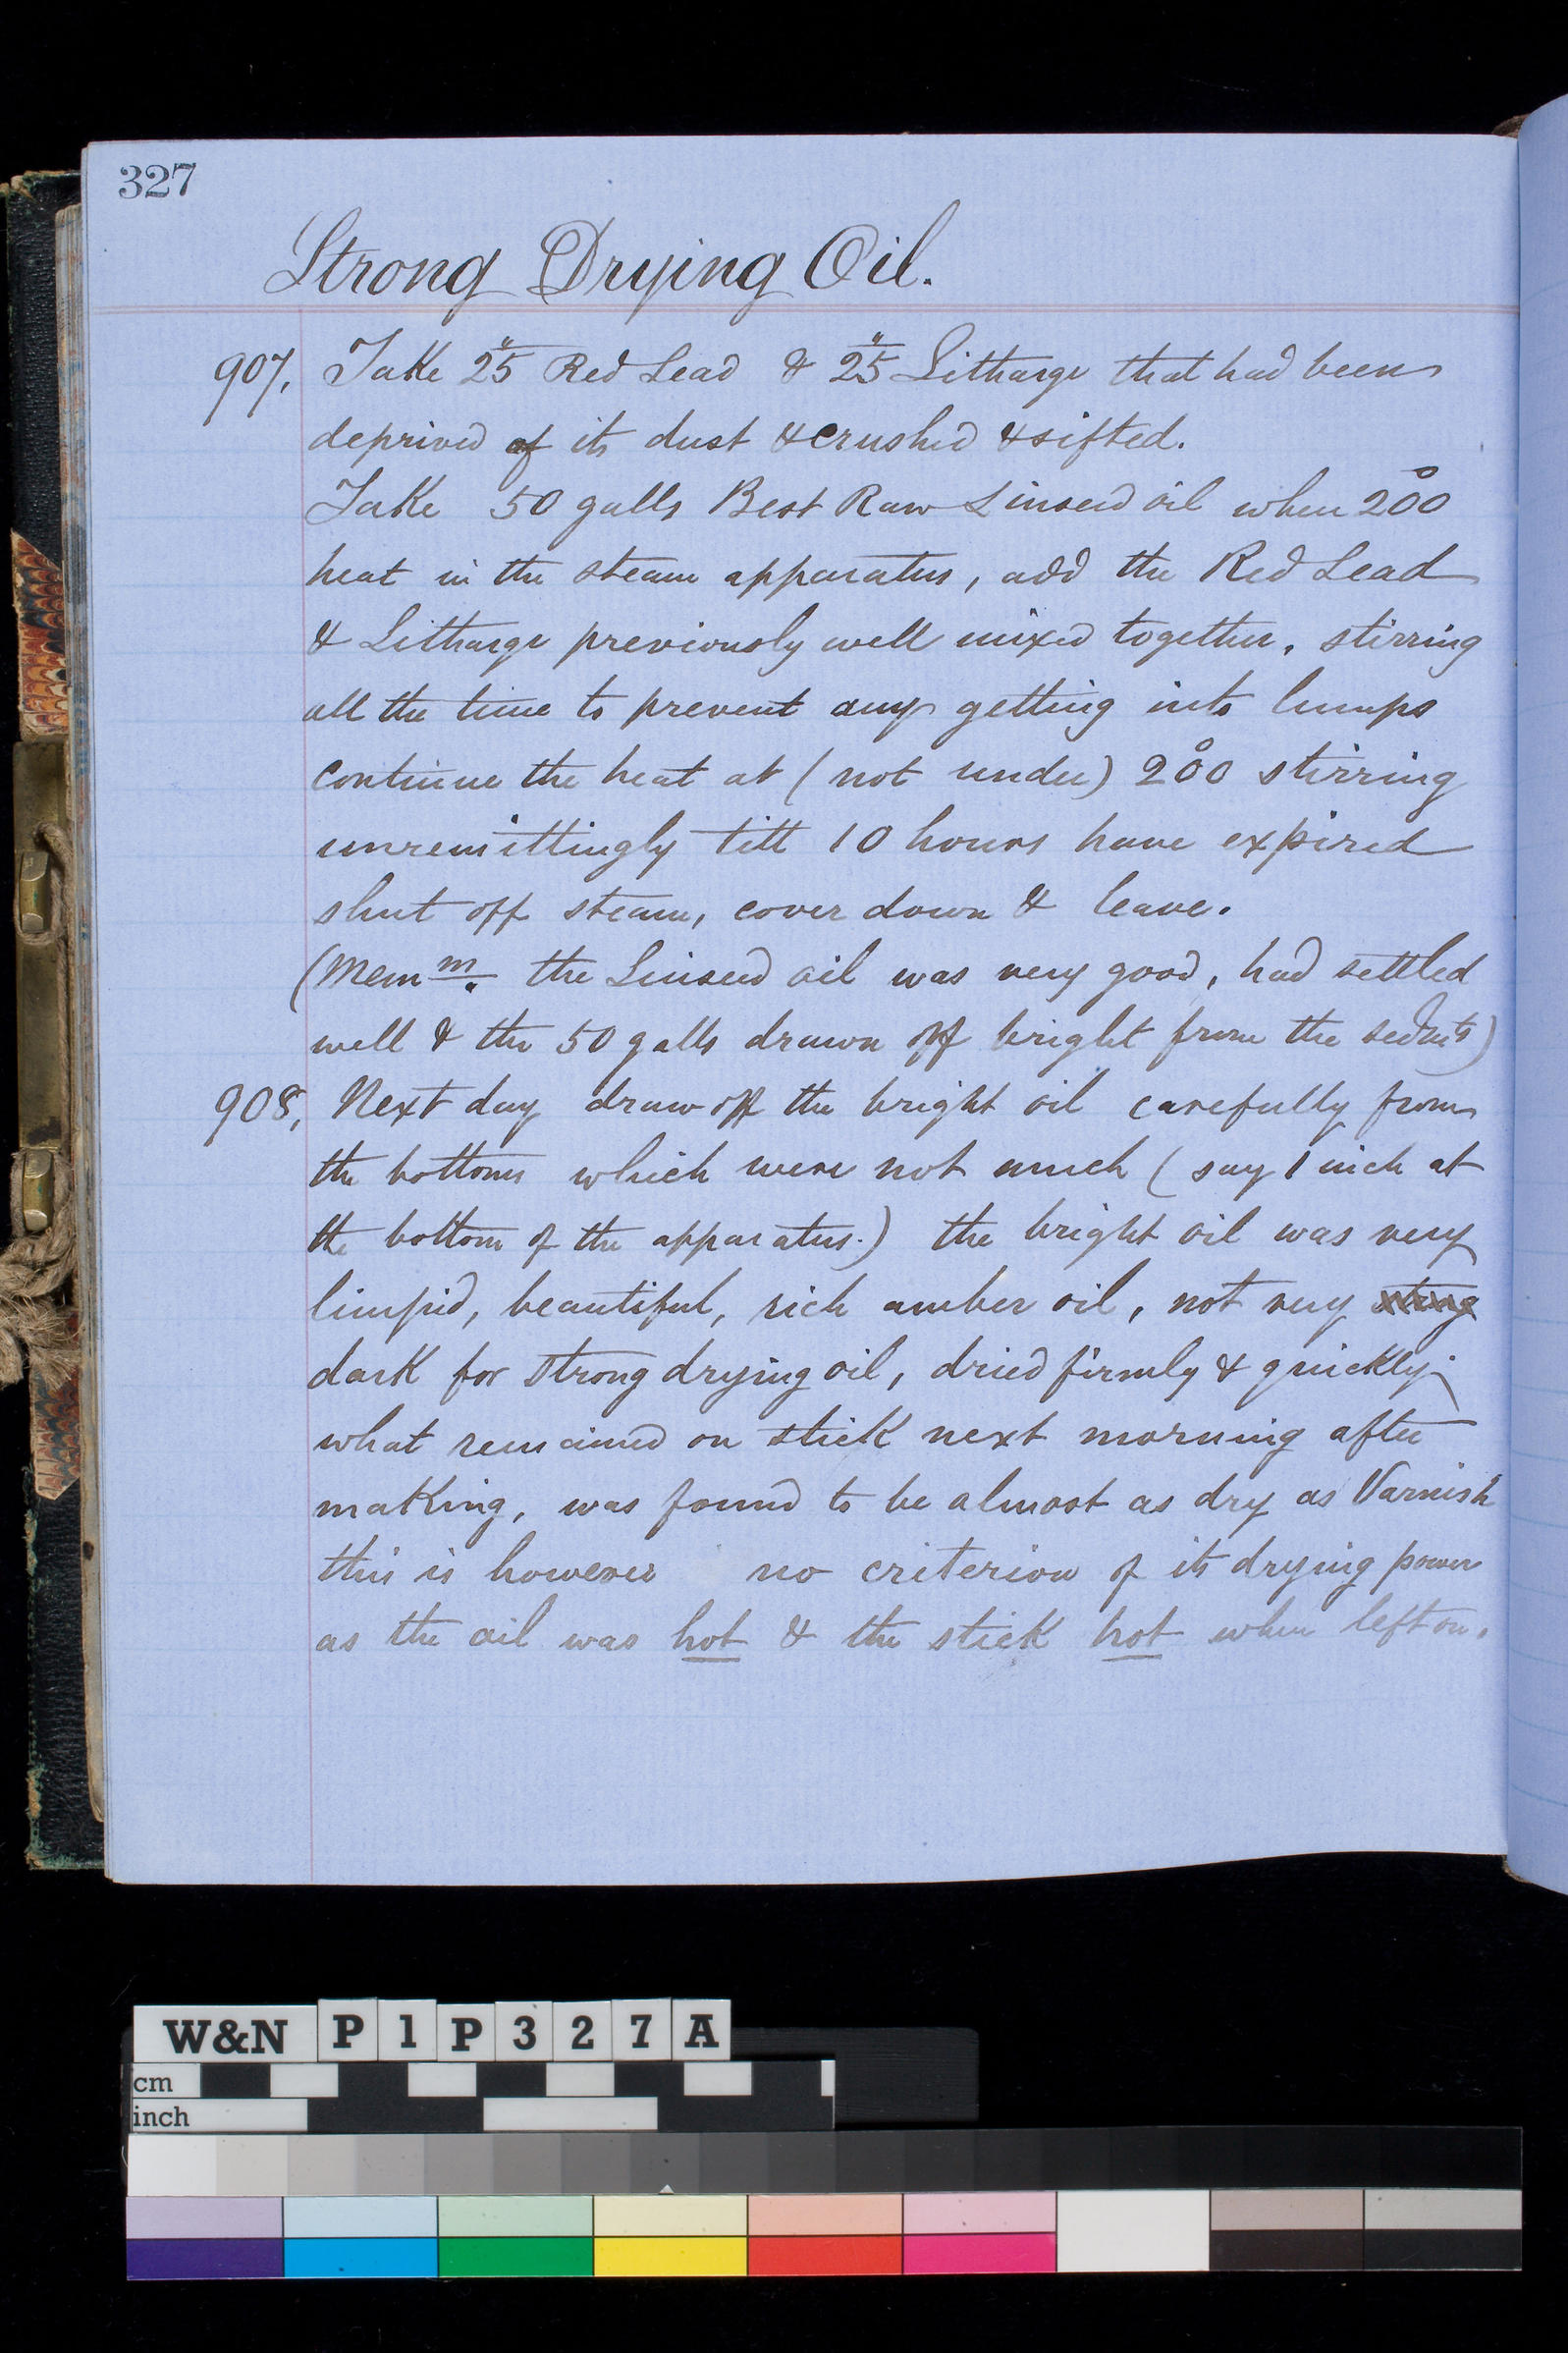 327
Strong Drying Oil.
907, Take 25" Red Lead & 25" Litharge that had been
deprived of its dust & crushed & sifted.
Take 50 galls Best Raw Linseed oil when 200°
heat in the steam apparatus, add the Red Lead
& Litharge previously well mixed together, stirring
all the time to prevent any getting into lumps
continue the heat at (not under) 200° stirring
unremittingly till 10 hours have expired
shut off steam, cover down & leave.
(Mem m. the Linseed oil was very good, had settled
well & the 50 galls drawn off bright from the
908, Next day draw off the bright oil carefully from
the bottoms which were not much (say 1 inch at
the bottom of the apparatus.) the bright oil was very
limpid, beautiful, rich amber oil, not very strong
dark for strong drying oil, dried firmly & quickly.
what remained on stick next morning after
making, was found to be almost as dry as Varnish
this is however no criterion of its drying power
as the oil was hot & the stick hot when left on.
W&N P1P327A
cm
inch